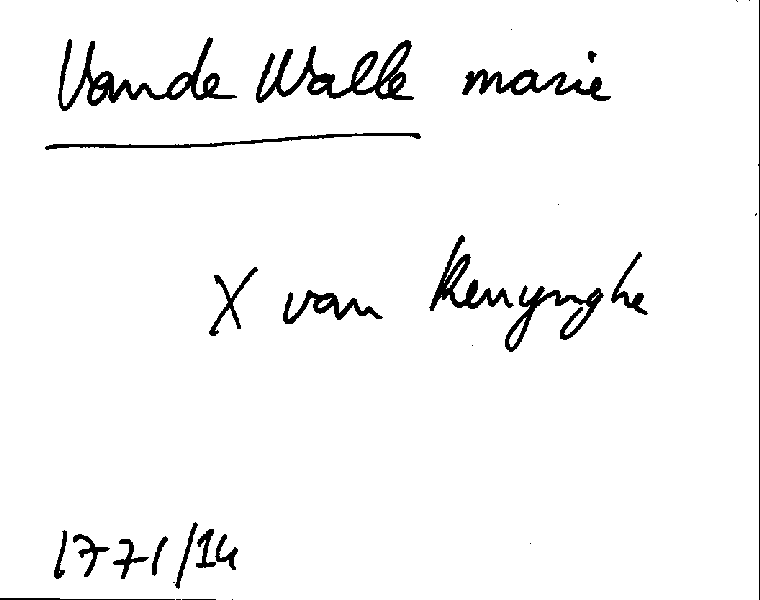 Vande Walle marie
X van Renynghe
1771/14